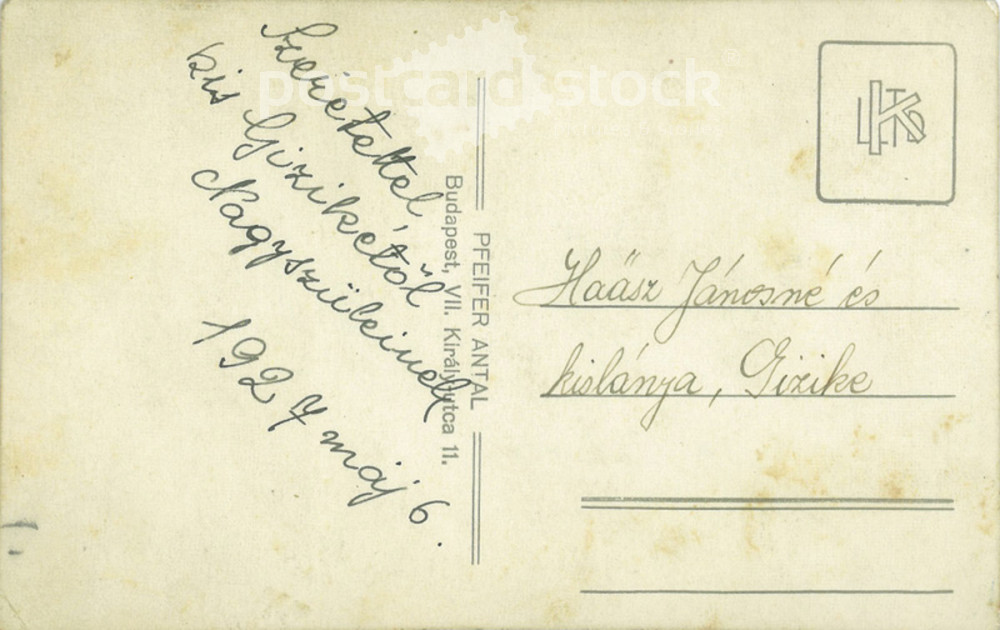 Szeretettel
kis Gizikétől
Nagyszüleinek
1927 máj 6.
PFEIFER ANTAL
Budapest, VII. Király-utca 11.
Haász Jánosné és
kislánya, Gizike
postcard stock